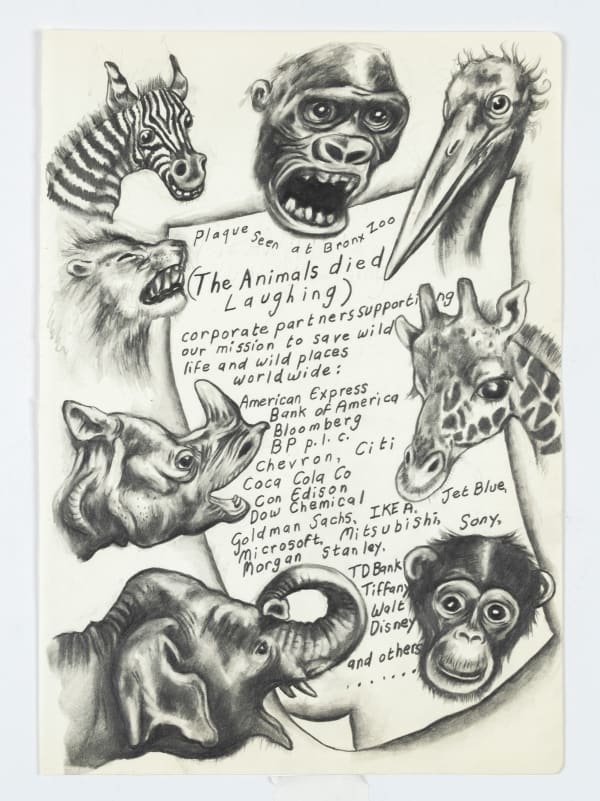 Plaque Seen at Bronx Zoo
(The Animals died
Laughing)
corporate partners supporting
our mission to save wild
life and wild places
worldwide:
American Express
Bank of America
Bloomberg
BP p.l.c.
Chevron, Citi
Coca Cola Co
Con Edison
Dow Chemical
Goldman Sachs, IKEA. Jet Blue,
Microsoft, Mitsubishi, Sony,
Morgan Stanley.
TD Bank
Tiffany
Walt
Disney
and others
. . . . . . .